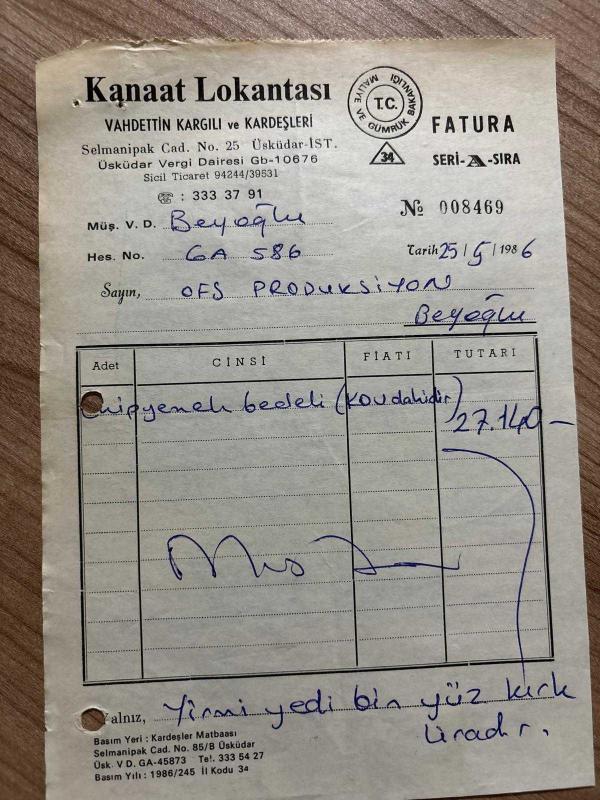 Kanaat Lokantası
VAHDETTİN KARGILI ve KARDEŞLERİ
Selmanipak Cad. No. 25 Üsküdar-İST.
Üsküdar Vergi Dairesi Gb-10676
Sicil Ticaret 94244/39531
☎ : 333 37 91
T.C.
MALİYE VE GÜMRÜK BAKANLIĞI
34
FATURA
SERİ-A-SIRA
№ 008469
Müş. V. D. Beyoğlu
Hes. No. GA 586
Tarih 25/5/1986
Sayın, OFS PRODUKSİYON
Beyoğlu
Adet CİNSİ FİATI TUTARI
Ekipyemek bedeli (KDV dahidir) 27.140-
Yalnız, Yirmi yedi bin yüz kırk
liradır.
Basım Yeri : Kardeşler Matbaası
Selmanipak Cad. No. 85/B Üsküdar
Üs. V D. GA-45873 Tel. 333 54 27
Basım Yılı : 1986/245 İl Kodu 34